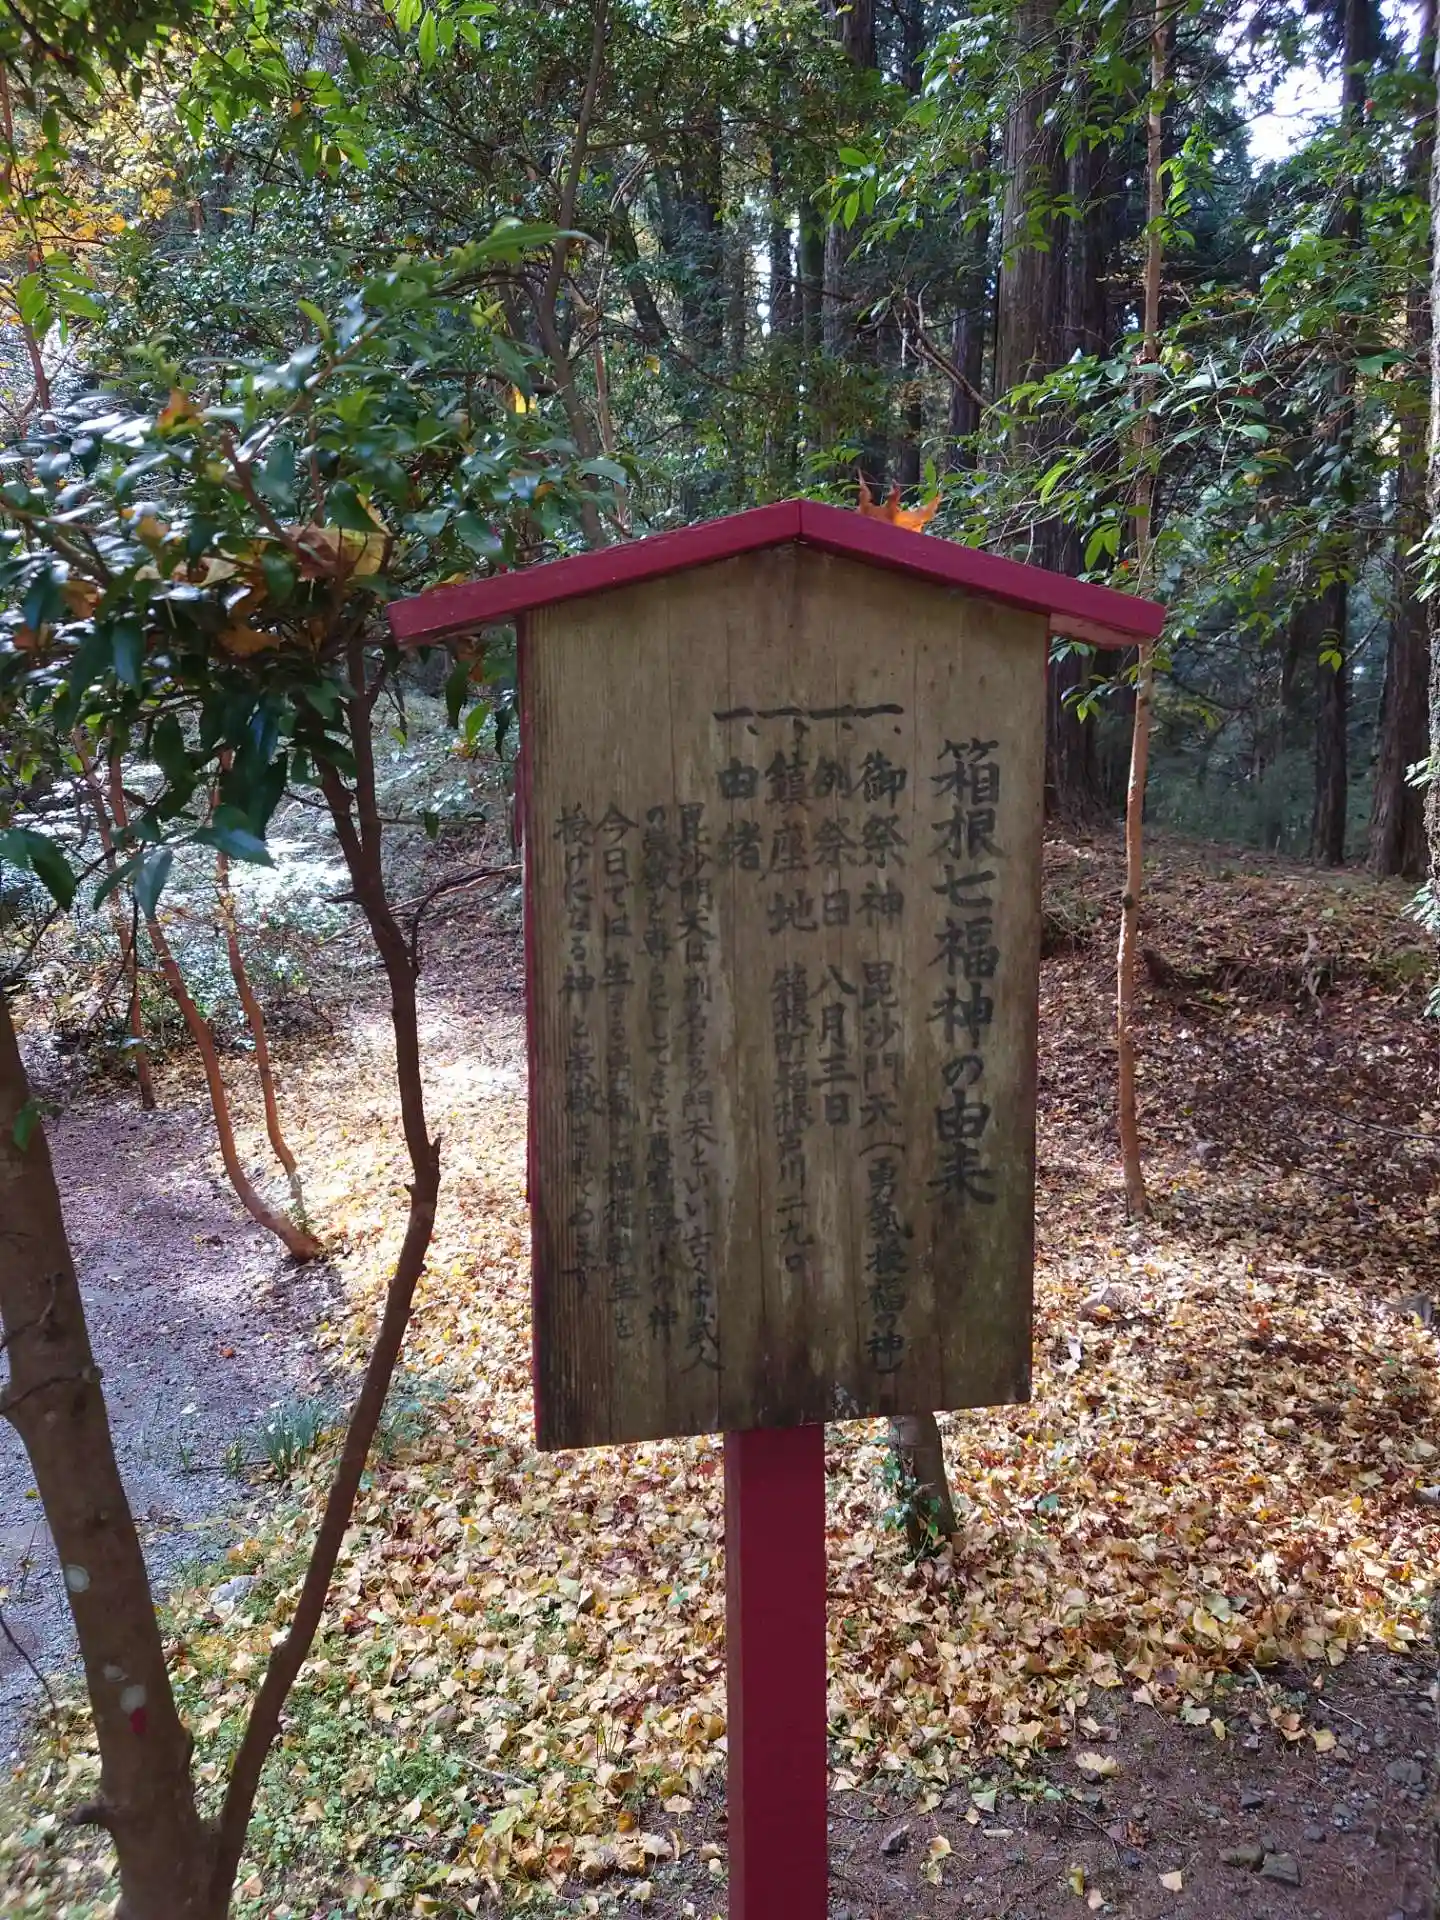 箱根七福神の由来
一、御祭神 毘沙門天(勇気授福の神)
一、例祭日 八月三日
一、鎮座地 箱根町箱根芦川二九〇
一、由緒
毘沙門天は別名を多門天といい古くより武人
の崇敬を専らにしてきた悪霊降伏の神
今日では生きる勇気と福徳を
授けになる神と崇敬されています